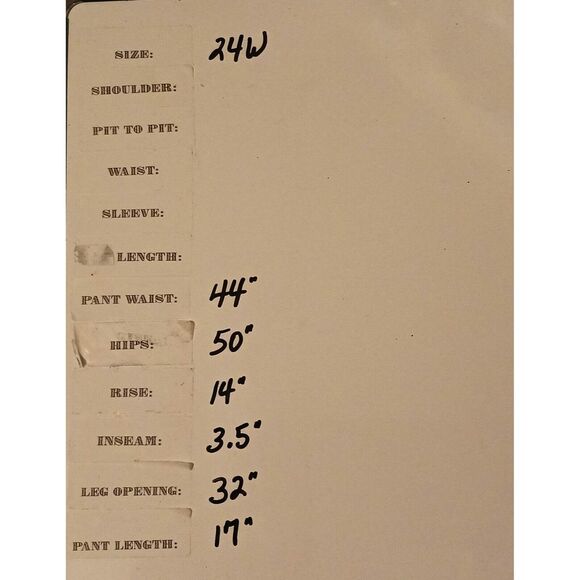 SIZE: 24W
SHOULDER:
PIT TO PIT:
WAIST:
SLEEVE:
LENGTH:
PANT WAIST: 44"
HIPS: 50"
RISE: 14"
INSEAM: 3.5"
LEG OPENING: 32"
PANT LENGTH: 17"